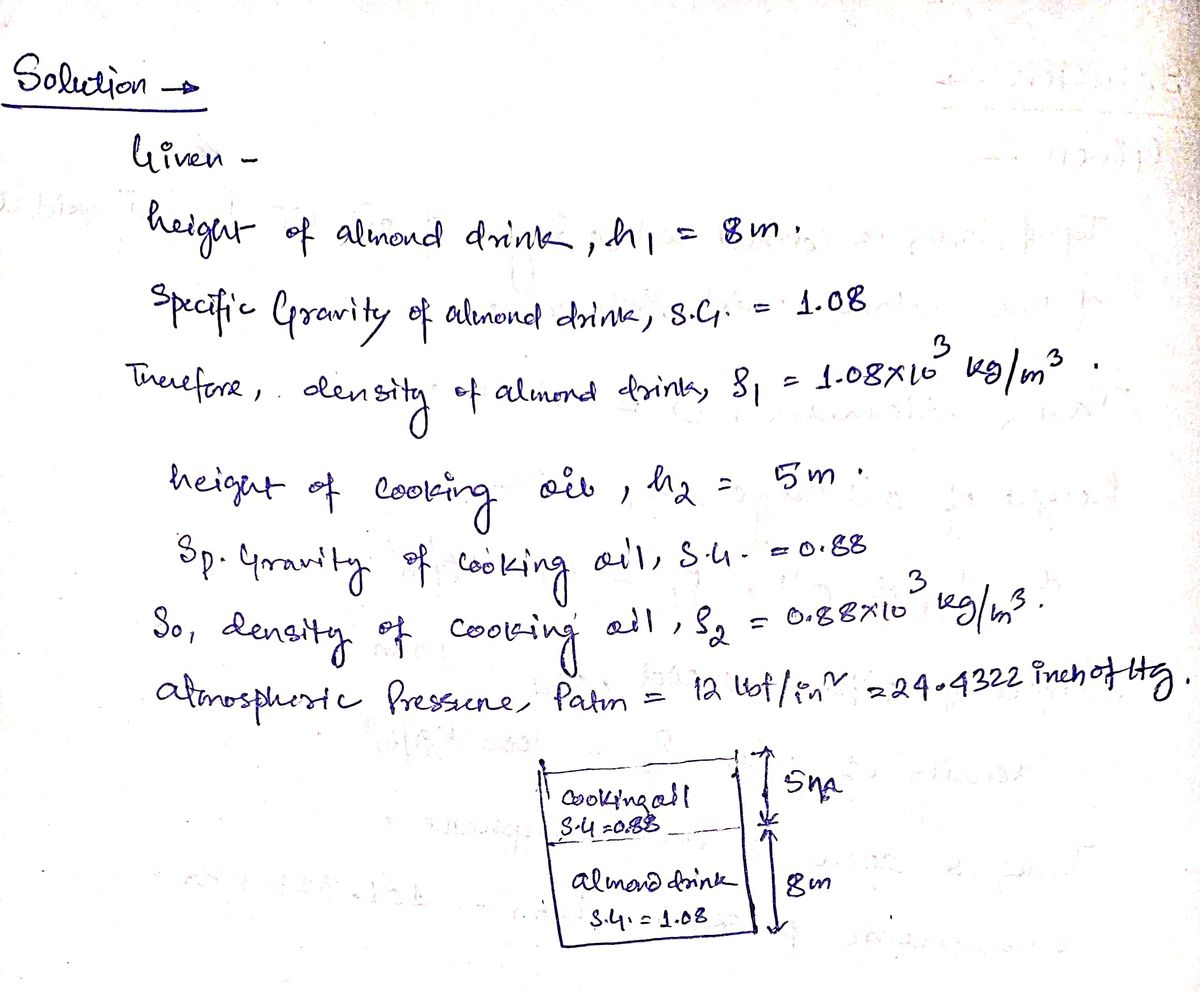 Solution →
Given -
height of almond drink, h₁ = 8m.
Specific Gravity of almond drink, S.G. = 1.08
Therefore, density of almond drink, ρ₁ = 1.08×10³ kg/m³.
height of cooking oil, h₂ = 5m.
Sp. Gravity of cooking oil, S.G. = 0.88
So, density of cooking oil, ρ₂ = 0.88×10³ kg/m³.
atmospheric Pressure, Patm = 12 lbf/in² = 24.4322 inch of Hg.
cooking oil
S.G = 0.88
5m
almond drink
S.G. = 1.08
8m